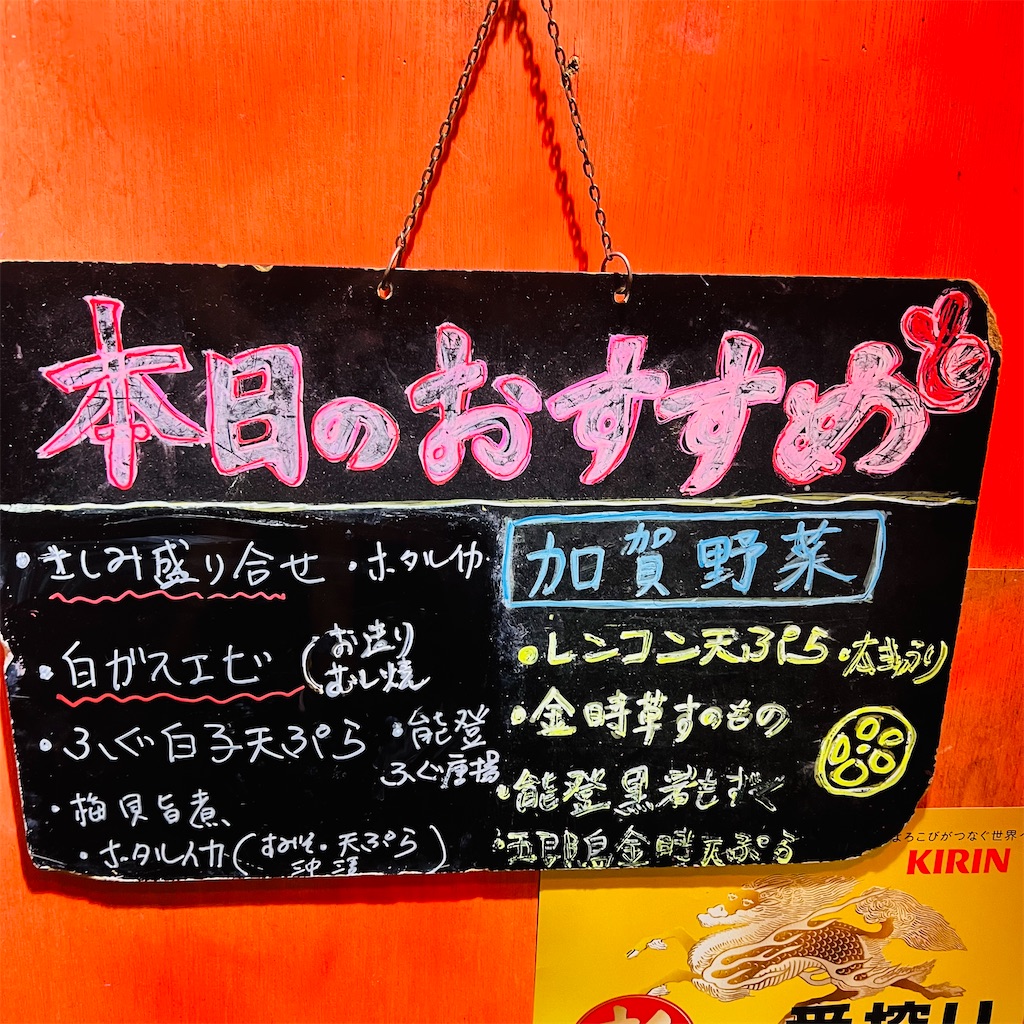 本日のおすすめ
・さしみ盛り合せ ・ホタルイカ
・白ガスエビ (お造り
むし焼
・ふぐ白子天ぷら ・能登
ふぐ唐揚
・梅貝旨煮
・ホタルイカ(すみそ・天ぷら)
沖漬
加賀野菜
・レンコン天ぷら ・太きゅうり
・金時草すのもの
・能登黒岩もずく
・五郎島金時天ぷら
よろこびがつなぐ世界へ
KIRIN
一番搾り